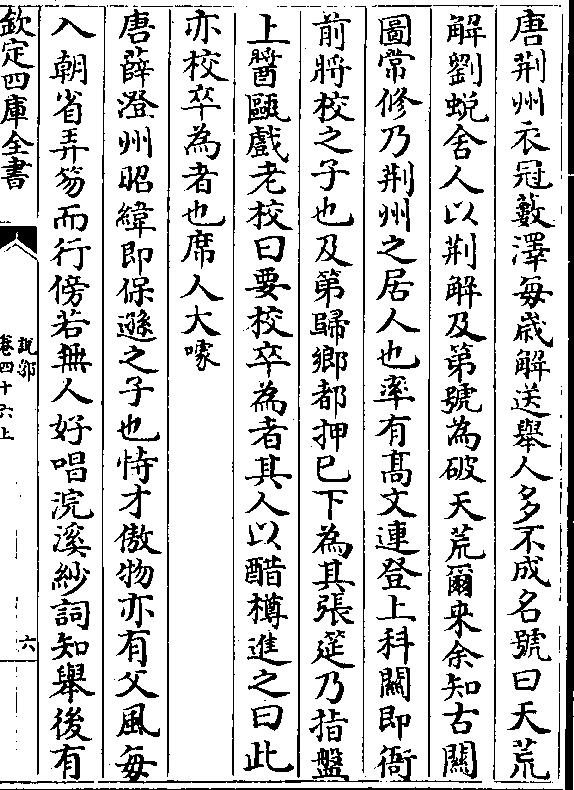 唐荆州衣冠藪澤每歲解送舉人多不成名號曰天荒
解劉蛻舍人以荆解及第號為破天荒爾来余知古關
圖常修乃荆州之居人也率有髙文連登上科關即衙
前將校之子也及第歸鄉都押已下為其張筵乃指盤
上醬甌戲老校曰要校卒為者其人以醋樽進之曰此
亦校卒為者也席人大噱
唐薛澄州昭緯即保遜之子也恃才傲物亦有父風每
入朝省弄笏而行傍若無人好唱浣溪紗詞知舉後有
欽定四庫全書
說郛
卷四十六上
六